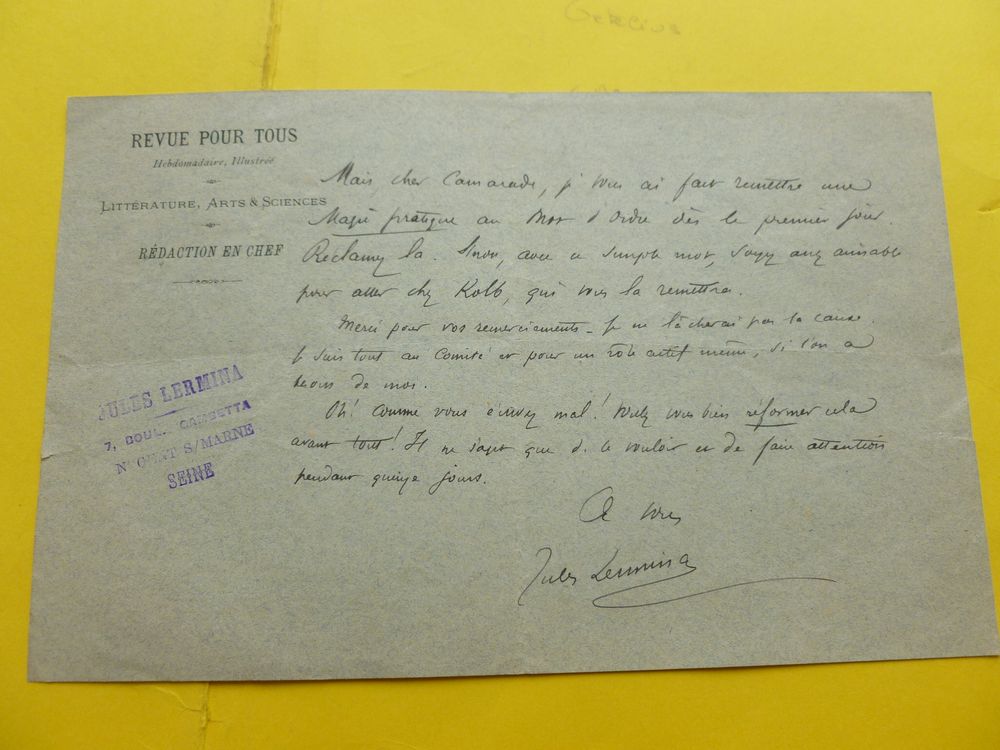 REVUE POUR TOUS
Hebdomadaire, Illustrée
LITTÉRATURE, ARTS & SCIENCES
RÉDACTION EN CHEF
Mais cher Camarade, je vous ai fait remettre une
Magie pratique au Mot d'Ordre dès le premier jour.
Réclamez la. Sinon, avec ce simple mot, soyez assez aimable
pour aller chez Kolb, qui vous la remettra.
Merci pour vos remerciements - Je ne lâcherai pas la cause.
Je suis tout au Comité et pour un rôle actif même, si l'on a
besoin de moi.
Oh! comme vous écrivez mal! Voulez vous bien réformer cela
avant tout! Il ne s'agit que de le vouloir et de faire attention
pendant quinze jours.
A vous
Jules Lermina
JULES LERMINA
7, BOUL. GAMBETTA
NOGENT S/MARNE
SEINE